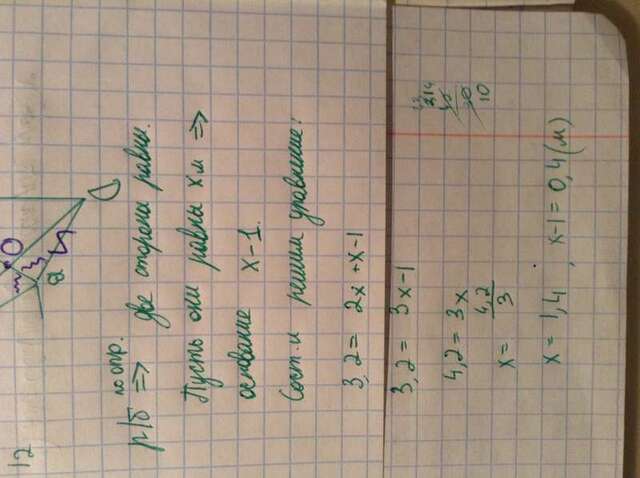 12
O
D
a
р/б ⇒ по опр. две стороны равны.
Пусть они равны x м ⇒
основание x-1.
Сост. и решим уравнение:
3,2 = 2x + x - 1
3,2 = 3x - 1
4,2 = 3x
x = 4,2/3
x = 1,4, x-1 = 0,4 (м)
10